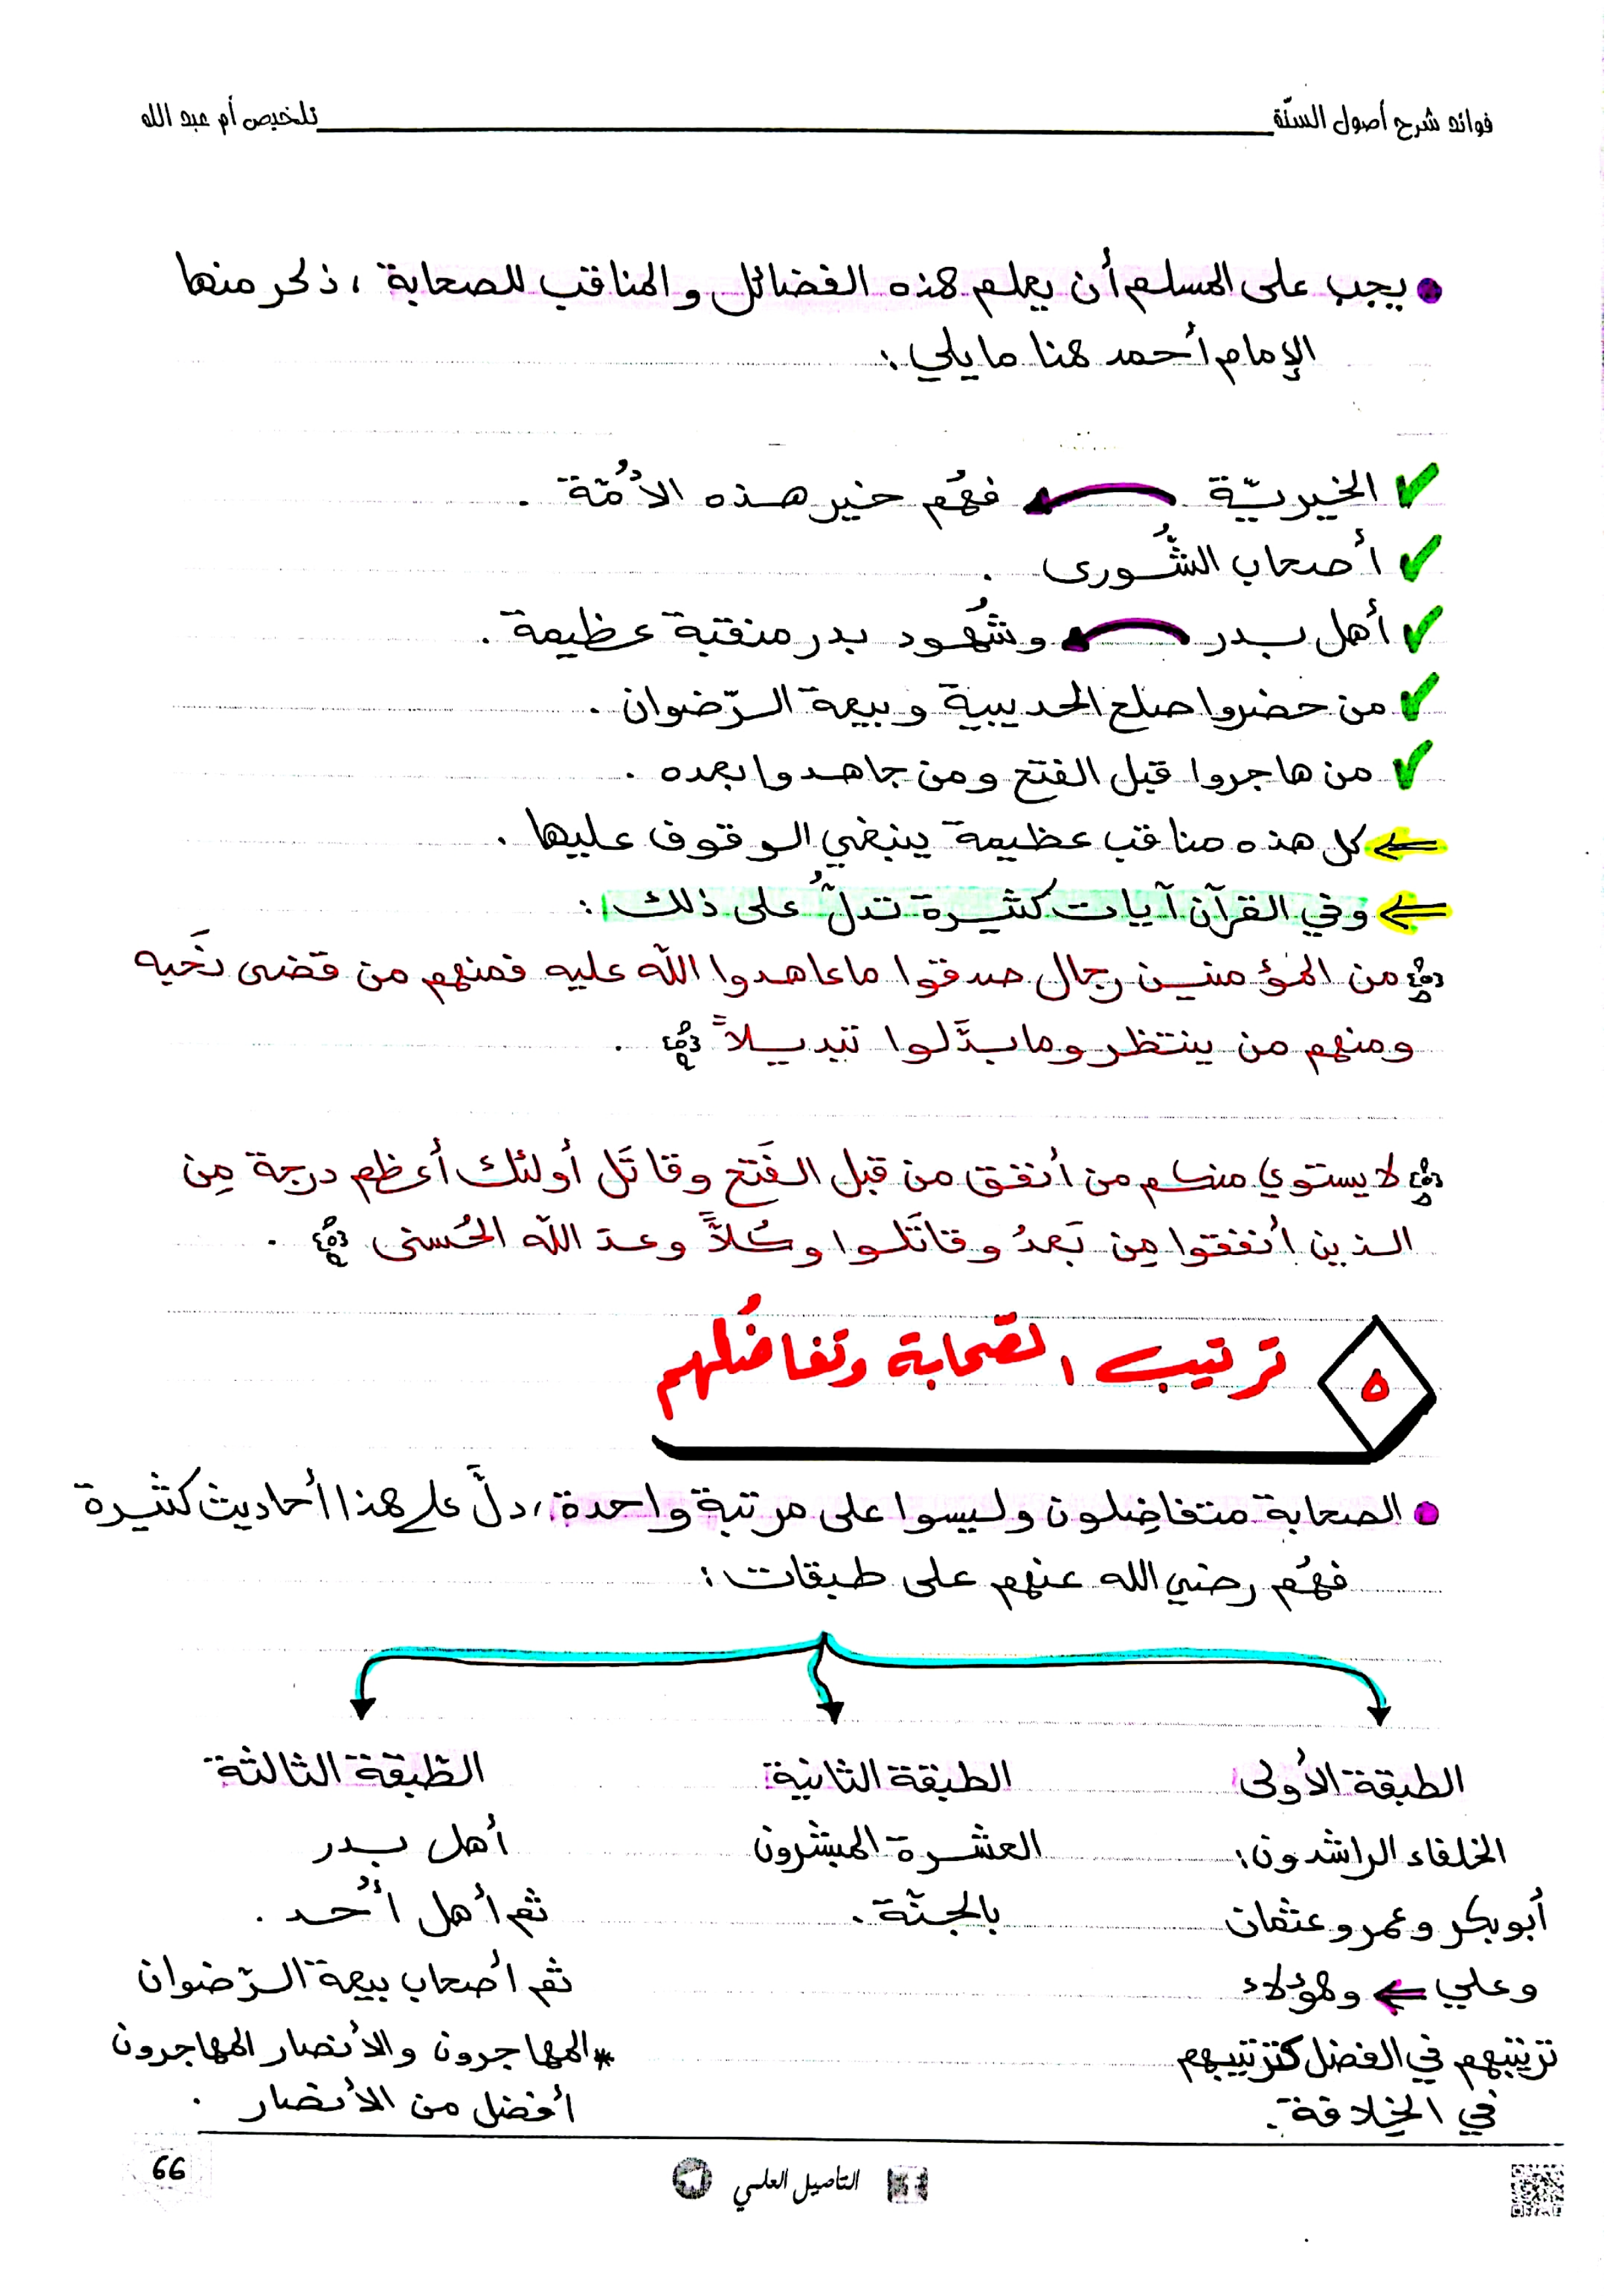 فوائد شرح أصول السنّة
تلخيص أم عبد الله
يجب على المسلم أن يعلم هذه الفضائل والمناقب للصحابة ، ذكر منها
الإمام أحمد هنا ما يلي :
الخيريّة فهُم خير هذه الأُمّة .
أصحاب الشُّورى .
أهل بدر وشُهود بدر منقبة عظيمة .
من حضروا صلح الحديبية وبيعة الرّضوان .
من هاجروا قبل الفتح ومن جاهدوا بعده .
كل هذه مناقب عظيمة ينبغي الوقوف عليها .
وفي القرآن آيات كثيرة تدلُّ على ذلك :
﴿ من المؤمنين رجال صدقوا ما عاهدوا الله عليه فمنهم من قضى نَحبه
ومنهم من ينتظر وما بدَّلوا تبديلاً ﴾ .
﴿ لا يستوي منكم من أنفق من قبل الفَتح وقاتَل أولئك أعظم درجة مِن
الذين أنفقوا مِن بَعدُ وقاتَلوا وكُلاًّ وعد الله الحُسنى ﴾ .
٥ ترتيب الصّحابة وتفاضُلهم
الصحابة متفاضِلون وليسوا على مرتبة واحدة ، دلَّ على هذا أحاديث كثيرة
فهُم رضي الله عنهم على طبقات :
الطبقة الأولى
الخلفاء الراشدون :
أبو بكر وعمر وعثمان
وعلي ← وهؤلاء
ترتيبهم في الفضل كترتيبهم
في الخِلافة .
الطبقة الثانية
العشرة المبشّرون
بالجنّة .
الطّبقة الثالثة
أهل بدر
ثم أهل أُحد .
ثم أصحاب بيعة الرّضوان
*المهاجرون والأنصار المهاجرون
أفضل من الأنصار .
التأصيل العلمي
66